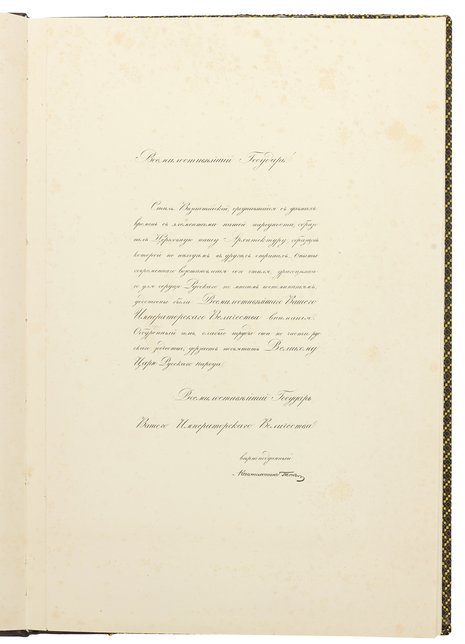 Всемилостивѣйшій Государь!
Стиль Византійскій, сроднившійся съ давнихъ
временъ съ элементами нашей народности, образо-
валъ Церковную нашу Архитектуру образцовъ
которой не находимъ въ другихъ странахъ. Опыты
современнаго возстановленія сего стиля, драгоцѣнна-
го для сердца Русскаго по многимъ воспоминаніямъ,
достойны были Всемилостивѣйшаго Вашего
Императорскаго Величества вниманія.
Ободренный имъ, слабые труды свои по части рус-
скаго зодчества, дерзаетъ посвятить Великому
Царю Русскаго народа.
Всемилостивѣйшій Государь
Вашего Императорскаго Величества
вѣрноподданный
Константинъ Тонъ